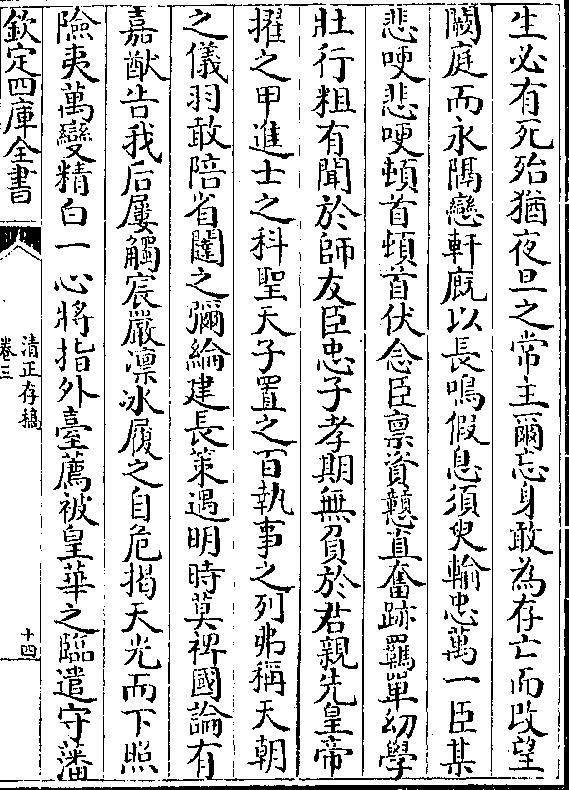 生必有死殆猶夜旦之常主爾忘身敢為存亡而改望
闕庭而永隔戀軒廐以長鳴假息須臾輸忠萬一臣某
悲哽悲哽頓首頓首伏念臣禀資戇直奮跡羈單幼學
壯行粗有聞於師友臣忠子孝期無負於君親先皇帝
擢之甲進士之科聖天子置之百執事之列弗稱天朝
之儀羽敢陪省闥之彌綸建長策遇明時莫裨國論有
嘉猷告我后屢觸宸嚴凛冰履之自危揭天光而下照
險夷萬變精白一心將指外臺薦被皇華之臨遣守藩
欽定四庫全書
清正存稿
卷三
十四